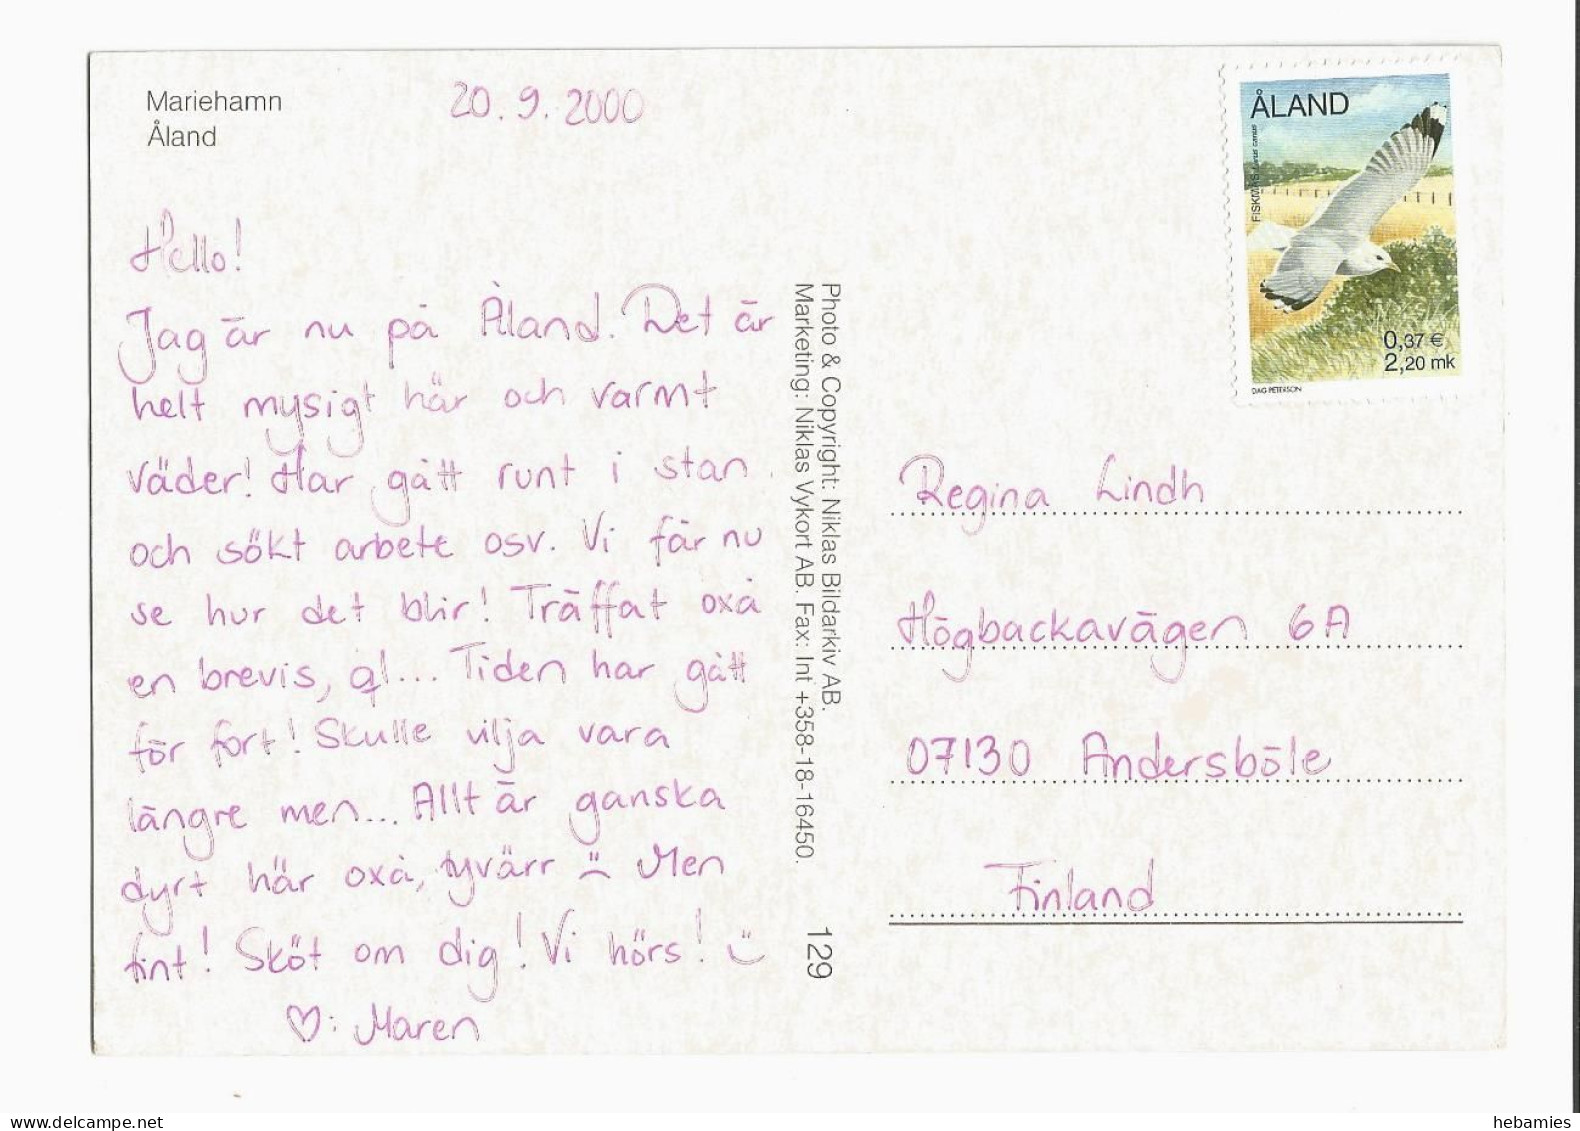 Mariehamn
Åland
20.9.2000
Hello!
Jag är nu på Åland. Det är
helt mysigt här och varmt
väder! Har gått runt i stan
och sökt arbete osv. Vi får nu
se hur det blir! Träffat oxå
en brevis, ql... Tiden har gått
för fort! Skulle vilja vara
längre men... Allt är ganska
dyrt här oxå, tyvärr :( Men
fint! Sköt om dig! Vi hörs! :)
♡: Maren
Photo & Copyright: Niklas Bildarkiv AB.
Marketing: Niklas Vykort AB. Fax: Int +358-18-16450.
129
ÅLAND
FISKMÅS Larus canus
0,37 €
2,20 mk
DAG PETERSON
Regina Lindh
Högbackavägen 6A
07130 Andersböle
Finland
hebamies